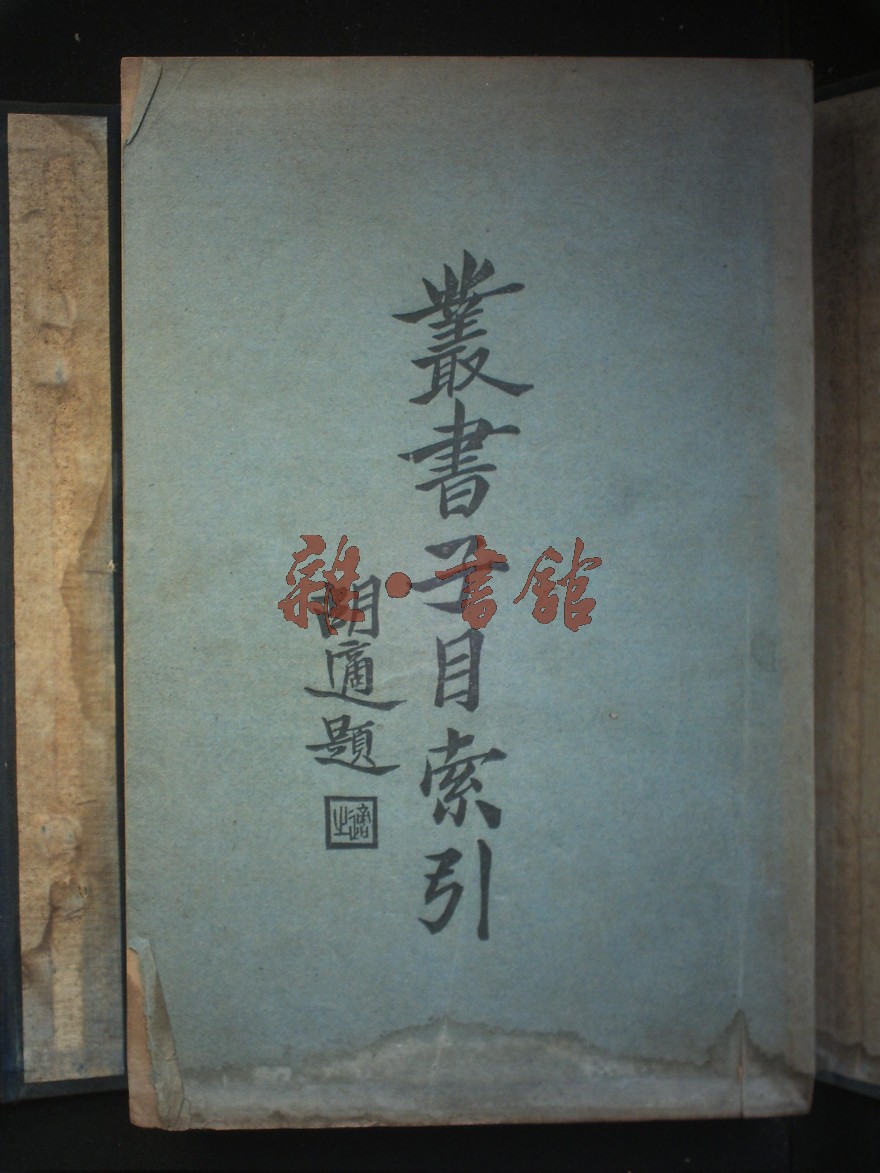 叢書子目索引
胡適題
適之
雜·書館